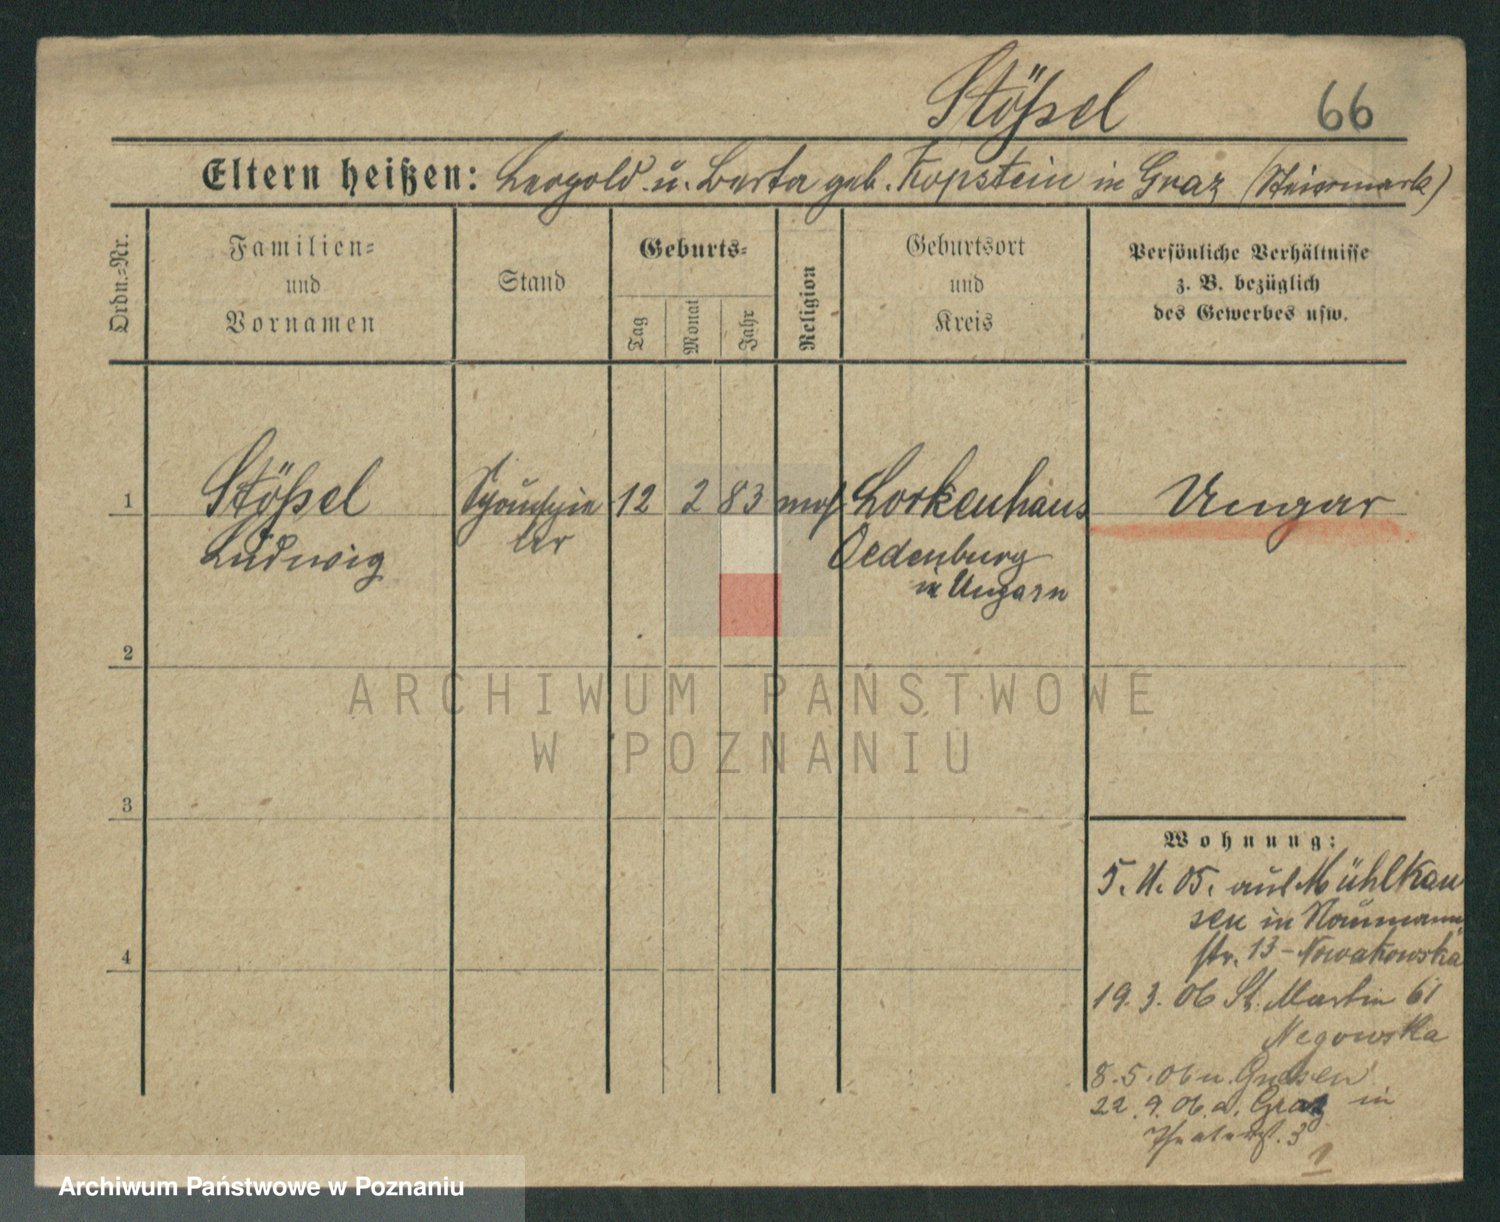 Stößel 66
Eltern heißen: Leopold u. Berta geb. Kopstein in Graz (Steiermark)
Ordn.=Nr.
Familien=
und
Vornamen
Stand
Geburts=
Tag
Monat
Jahr
Religion
Geburtsort
und
Kreis
Persönliche Verhältnisse
z. B. bezüglich
des Gewerbes usw.
1 Stößel Schauspie 12 2 83 mos Lockenhaus Ungar
Ludwig ler Oedenburg
in Ungarn
2
ARCHIWUM PAŃSTWOWE
W POZNANIU
3
Wohnung:
5. 11. 05. aus Mühlhau
sen in Naumann
str. 13 - Nowakowska
4
19. 3. 06 St. Martin 61
Negowska
8. 5. 06 n. Gnesen
22. 9. 06. a. Graz in
Theaterst. 3
Archiwum Państwowe w Poznaniu